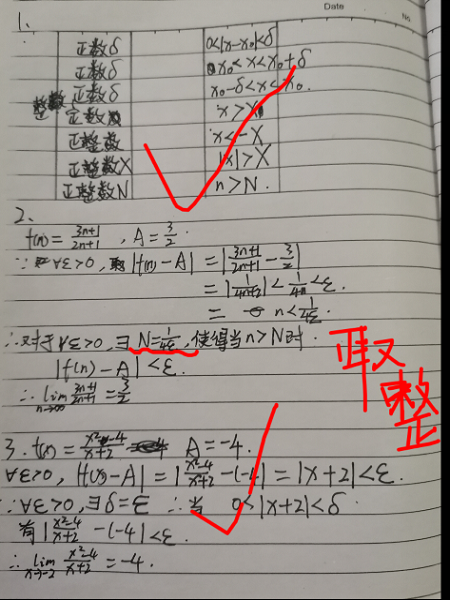 Date
No
1.
正数δ 0<|x-x₀|<δ
正数δ x₀<x<x₀+δ
正数δ x₀-δ<x<x₀.
x>X
正整数 x<-X
正整数X |x|>X
正整数N n>N.
2、
f(n)=\frac{3n+1}{2n+1}, A=\frac{3}{2}
∵ ∀ε>0, |f(n)-A|=|\frac{3n+1}{2n+1}-\frac{3}{2}|
=|\frac{1}{4n+2}|<\frac{1}{4n}<ε.
= n<\frac{1}{4ε}
∴对于∀ε>0, ∃N=\frac{1}{4ε}, 使得当n>N时.
|f(n)-A|<ε.
∴\lim_{n→∞}\frac{3n+1}{2n+1}=\frac{3}{2}
取整
3. f(x)=\frac{x²-4}{x+2} A=-4.
∀ε>0, |f(x)-A|=|\frac{x²-4}{x+2}-(-4)|=|x+2|<ε.
∵∀ε>0, ∃δ=ε ∴当 0<|x+2|<δ
有|\frac{x²-4}{x+2}-(-4)|<ε.
∴\lim_{x→-2}\frac{x²-4}{x+2}=-4.